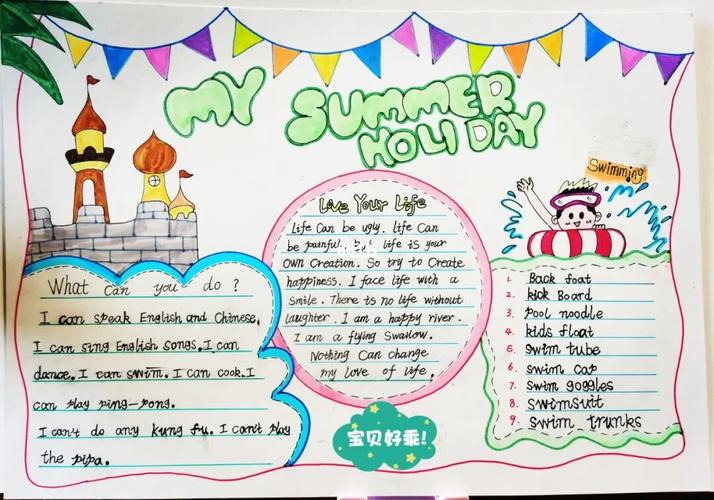 MY SUMMER
HOLIDAY
Swimming
Live Your Life
Life Can be ugly. Life Can
be painful. But life is your
OWN Creation. So try to Create
happiness. I face life with a
Smile. There is no life without
laughter. I am a happy river.
I am a flying Swallow.
Nothing Can change
my love of life.
What can you do?
I can speak English and Chinese.
I can sing English songs. I can
dance. I can swim. I can cook. I
can play ping-pong.
I can't do any kung fu. I can't play
the pipa.
1. Back foat
2. kick Board
3. pool noodle
4. kids float
5. swim tube
6. swim cap
7. swim goggles
8. swimsuit
9. swim trunks
宝贝好乖!